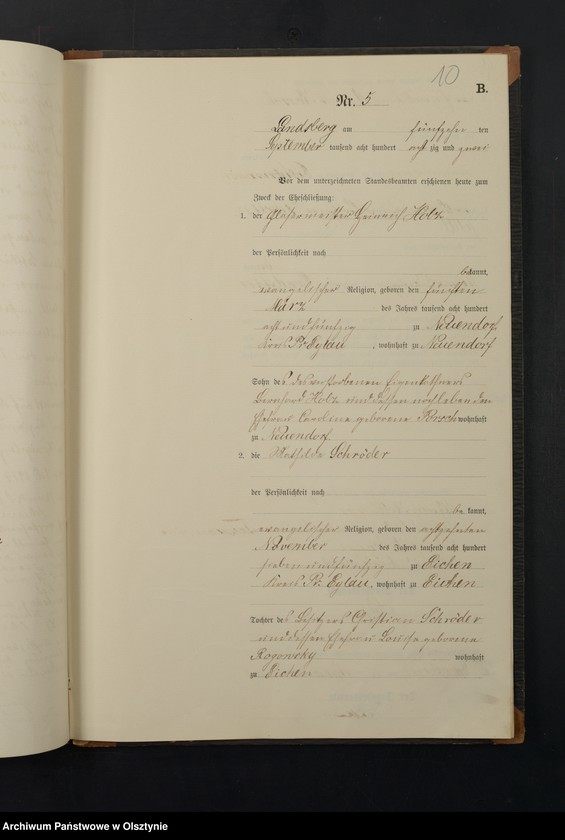 10
B.
Nr. 5
Landsberg am fünfzehn ten
September tausend acht hundert acht zig und zwei
Vor dem unterzeichneten Standesbeamten erschienen heute zum
Zweck der Eheschließung:
1. der Heinrich Holz
der Persönlichkeit nach
bekannt,
evangelischer Religion, geboren den fünften
März des Jahres tausend acht hundert
acht und fünfzig zu Neuendorf
Kreis Pr. Eylau, wohnhaft zu Neuendorf
Sohn des verstorbenen Eigenkäthners
Holz und dessen noch lebenden
Ehefrau geborene Porsch wohnhaft
zu Neuendorf
2. die Mathilde Schröder
der Persönlichkeit nach
be kannt,
evangelischer Religion, geboren den achtzehnten
November des Jahres tausend acht hundert
sieben und fünfzig zu Eichen
Kreis Pr. Eylau, wohnhaft zu Eichen
Tochter des Besitzers Christian Schröder
und dessen Ehefrau Louise geborene
Rogonsky wohnhaft
zu Eichen
Archiwum Państwowe w Olsztynie